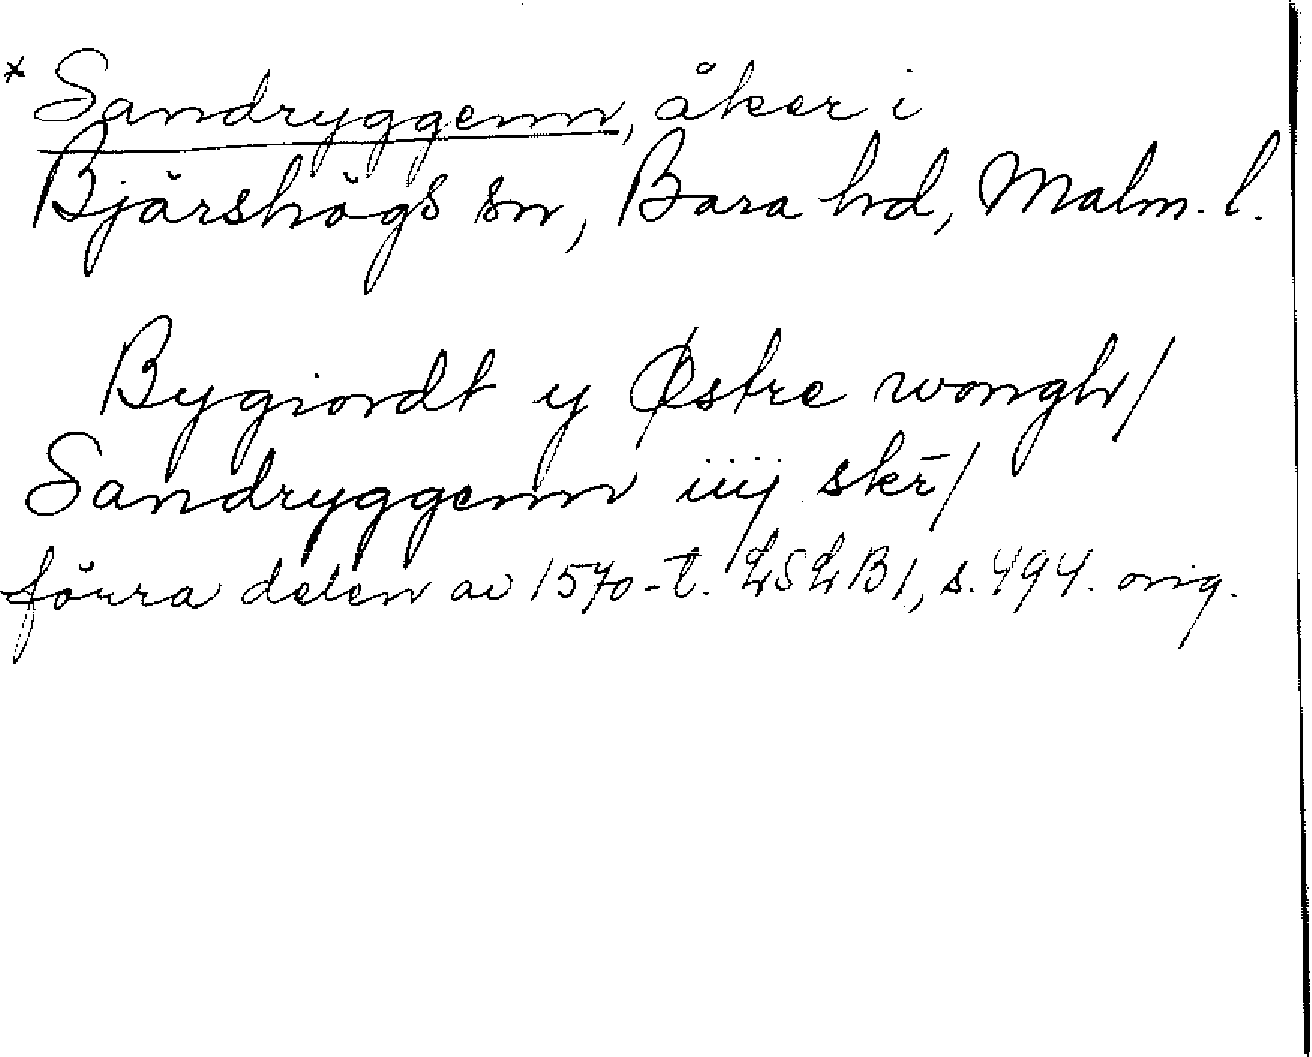 * Sandryggenn, åker i
Bjärshögs sn, Bara hd, Malm. l.
Bygiordt y Østre wongh/
Sandryggenn iiij skr̄/
förra delen av 1570-t. LSLB 1, s. 494. orig.